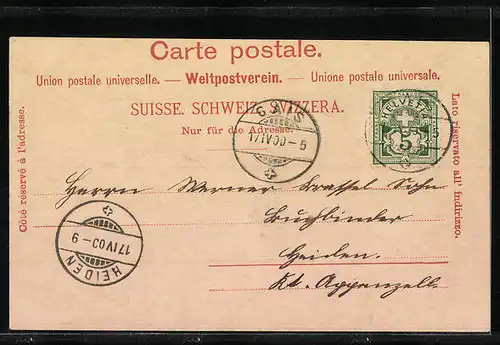 Carte postale.
Union postale universelle. — Weltpostverein. — Unione postale universale.
SUISSE. SCHWEIZ. SVIZZERA.
Nur für die Adresse.
Côté réservé à l'adresse.
Lato riservato all' indirizzo.
HELVETIA
5
GAIS
17 IV 00 – 5
HEIDEN
17 IV 00 – 9
Herrn Werner Sohn
Buchbinder
Heiden.
Kt. Appenzell.